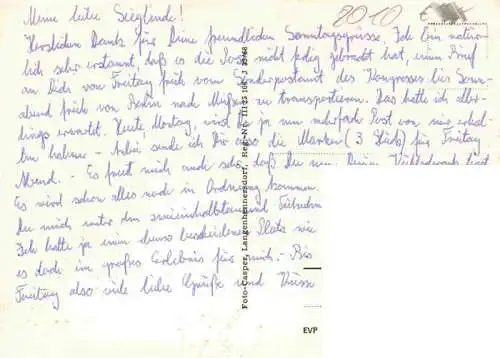 Meine liebe Sieglinde!
Herzlichen Dank für Deine freundlichen Sonntagsgrüsse. Ich bin natür-
lich sehr erstaunt, daß es die Post nicht fertig gebracht hat, einen Brief
an Dich von Freitag früh vom Sonderpostamt des Kongresses bis Sonn-
abend früh von Berlin nach zu transportieren. Das hatte ich aller-
dings erwartet. Heute, Montag, wirst Du ja nun mehrfach Post von mir erhal-
ten haben. - Anbei sende ich Dir also die Marken (3 Stück) für Freitag
Abend. - Es freut mich auch sehr, daß Du nun Deinen
Es wird schon alles noch in Ordnung kommen.
Du mich unter den zweieinhalbtausend
Ich hatte ja einen ebenso bescheidenen Platz wie
es doch ein großes Erlebnis für mich. - Bis
Freitag also viele liebe Grüße und Küsse
8010
Foto-Casper, Langenhennersdorf, Reg.-Nr. III 23 104 J 23/68
EVP